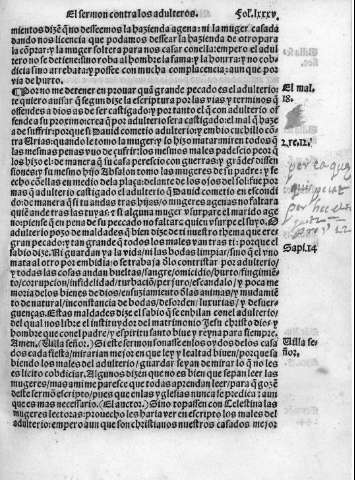 El sermon contra los adulteros. Fol.lxxxv.
mientos dize q̃ no desseemos la hazienda agena: ni la muger casada
dandonos licencia que podamos dessear la hazienda de otro para
la cõprar: y la muger soltera para nos casar con ella: empero el adul
tero no se detiene: sino roba al hombre la fama: y la honrra: y no cob
dicia sino arrebata: y possee con mucha complacencia: aun que por
via de hurto.
Por no me detener en prouar quã grande pecado es el adulterio:
te quiero auisar q̃ segun dize la escriptura por las vias y terminos q̃
offendes a dios as de ser castigado: y por tanto el q̃ con adulterio of
fende a su proximo crea q̃ por adulterio sera castigado: el mal q̃ haze
a de suffrir: porque si Dauid cometio adulterio: y embio cuchillo cõ
tra Urias: quando le tomo la muger: y lo hizo matar: miren todos q̃
las mesmas penas vuo de suffrir: y los mesmos males padescio por q̃
los hizo el: de manera q̃ su casa perescio con guerras: y grãdes dissen
siones: y su mesmo hijo Absalon tomo las mugeres de su padre: y se
echo cõ ellas en medio dela plaça: delante de los ojos del sol: sinc por
mas q̃ castigado el adulterio q̃ Dauid cometio en escondi
do: de manera q̃ si as tratado assi: hijos/o mugeres agenas no faltara
quiẽ ande tras las tuyas: e si alguna muger vsurpare el marido age
no: piense q̃ en pena de su peccado no faltara quien vsurpe el suyo. O
adulterio pozo de maldades q̃ bien dize de ti nuestro thema que eres
gran pecado: y tan grande q̃ todos los males van tras ti: porque el
sabio dize. Ni guardan ya la vida/ni las bodas limpias/sino q̃ el vno
mata al otro por embidia: o se trabaja õ lo contristar por adulterio:
y todas las cosas andan bueltas/sangre/omicidio/burto/fingimiẽ
to/corrupcion/infidelidad/turbaciõ/perjuro/escandalo/y poca me
moria delos bienes de dios/ensuziamiento õ las animas/y mudamiẽ
to de natural/inconstancia de bodas/desorden/luxurias/y desuer
guenças. Estas maldades dize el sabio q̃ se enhilan con el adulterio:
del qual nos libre el instituydor del matrimonio Jesu christo dios y
hombre que con el padre/y espiritu santo biue y reyna para siempre.
Amen. (Villa señor.) Si este sermon sonasse en los oydos de los casa
dos cada fiesta/mirarian mejor en que ley y lealtad biuen/porque sa
biendo los males del adulterio/guardar seyan de mirar lo q̃ no les
es licito cobdiciar. Algunos dizen que no es bien que sepan leer las
mugeres/mas a mi me paresce que todas aprendan leer/para q̃ gozẽ
deste sermõ escripto/pues que en las yglesias nunca se predica: aun
que es mas necessario. (El auctor.) Sino topassen con Celestina las
mugeres lectoras: prouecho les haria ver en escripto los males del
adulterio: empero aun que son christianos nuestros casados mejor
El mal.
18.
2.re.12.
Sapi.14
Villa se
ñor,